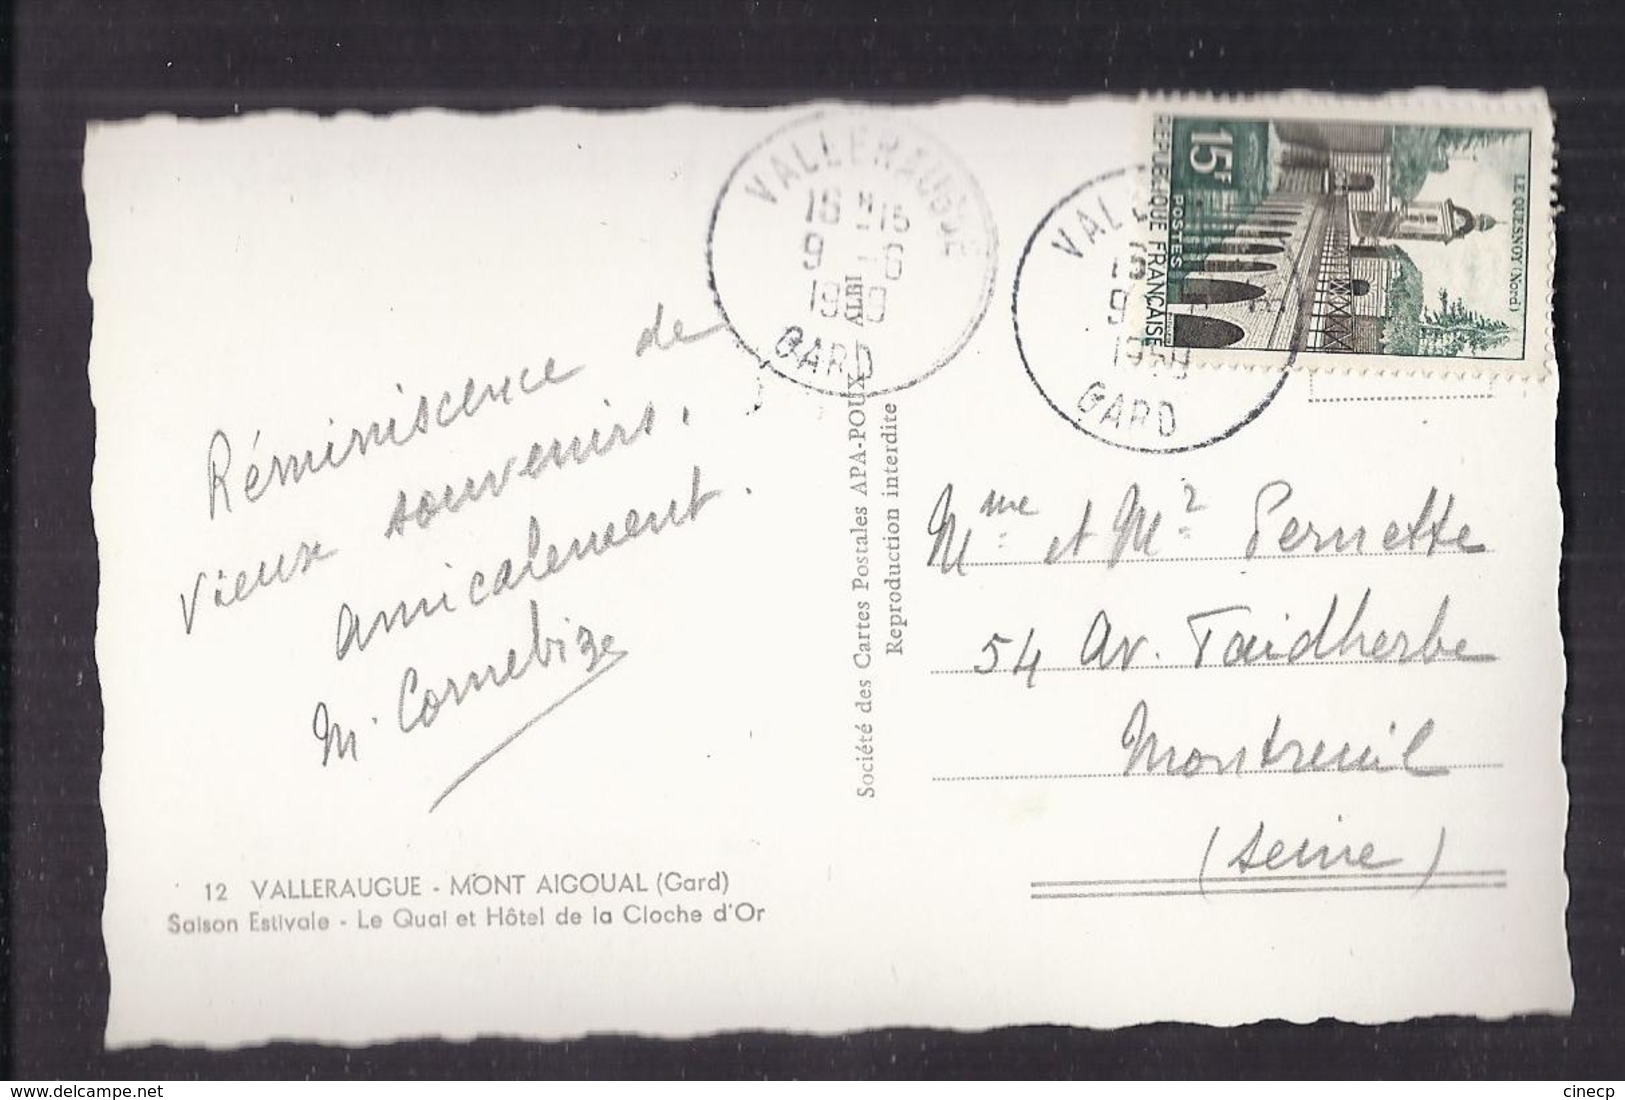 Réminiscence de
vieux souvenirs.
amicalement.
M. Cornebize
12 VALLERAUGUE - MONT AIGOUAL (Gard)
Saison Estivale - Le Quai et Hôtel de la Cloche d'Or
Société des Cartes Postales APA-POUX ALBI
Reproduction interdite
VALLERAUGUE
16 H 15
9 - 6
19 9
GARD
VAL
1959
GARD
15F
POSTES
REPUBLIQUE FRANÇAISE
LE QUESNOY (Nord)
Mme et Mr Pernette
54 Av. Faidherbe
Montreuil
(Seine)
cinecp